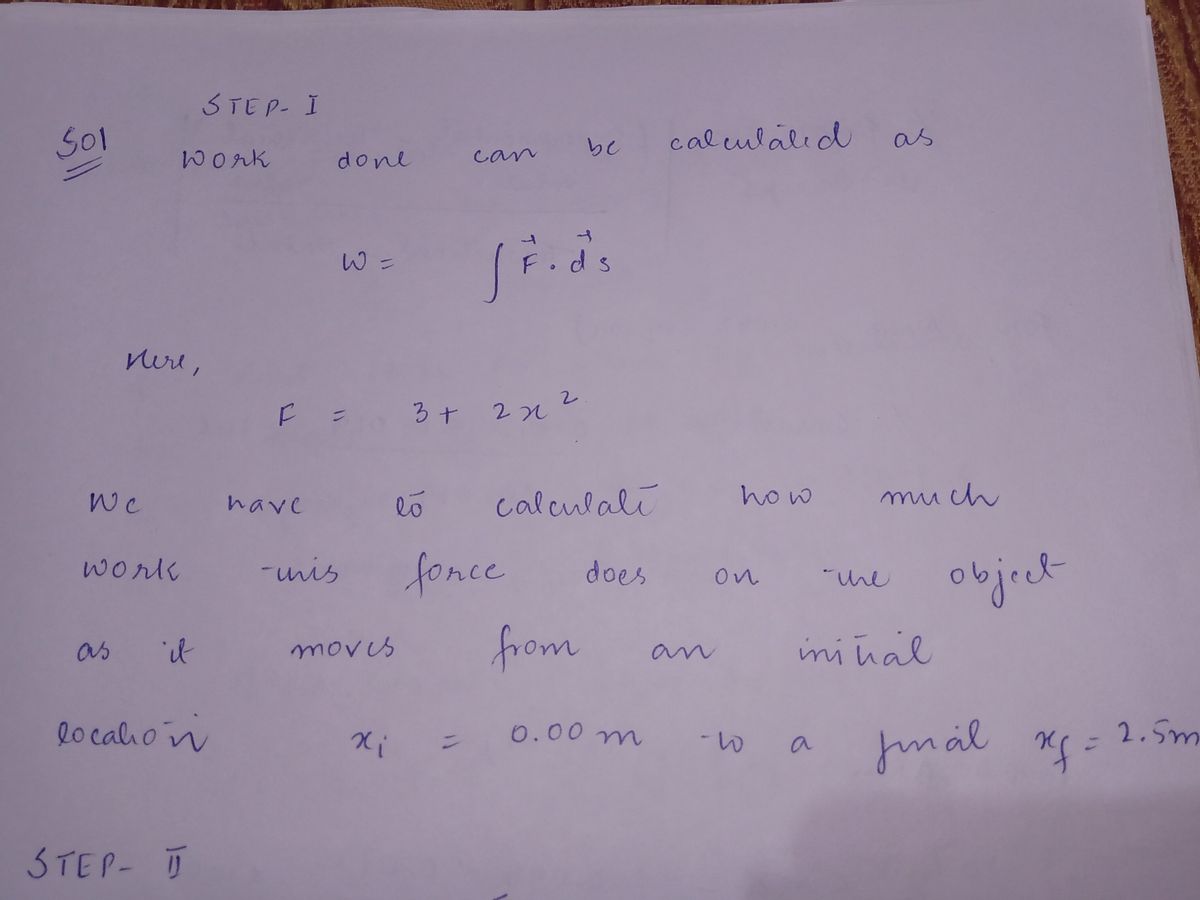 STEP-I
Sol Work done can be calculated as
W = ∫ F⃗ . d⃗s
Here,
F = 3 + 2x²
We have to calculate how much
work this force does on the object
as it moves from an initial
location xᵢ = 0.00 m to a final x_f = 2.5m
STEP- II